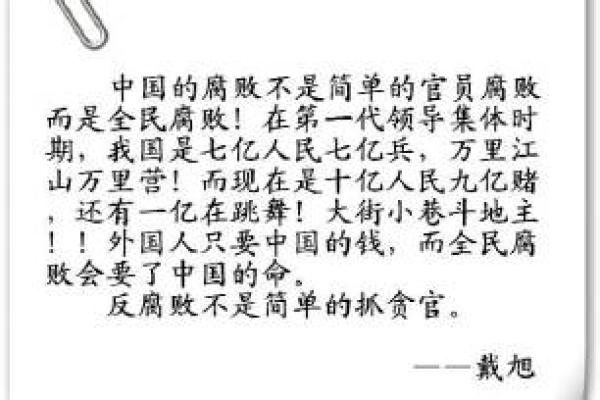 中国的腐败不是简单的官员腐败
而是全民腐败！在第一代领导集体时
期，我国是七亿人民七亿兵，万里江
山万里营！而现在是十亿人民九亿赌
，还有一亿在跳舞！大街小巷斗地主
！！外国人只要中国的钱，而全民腐
败会要了中国的命。
反腐败不是简单的抓贪官。
——戴旭